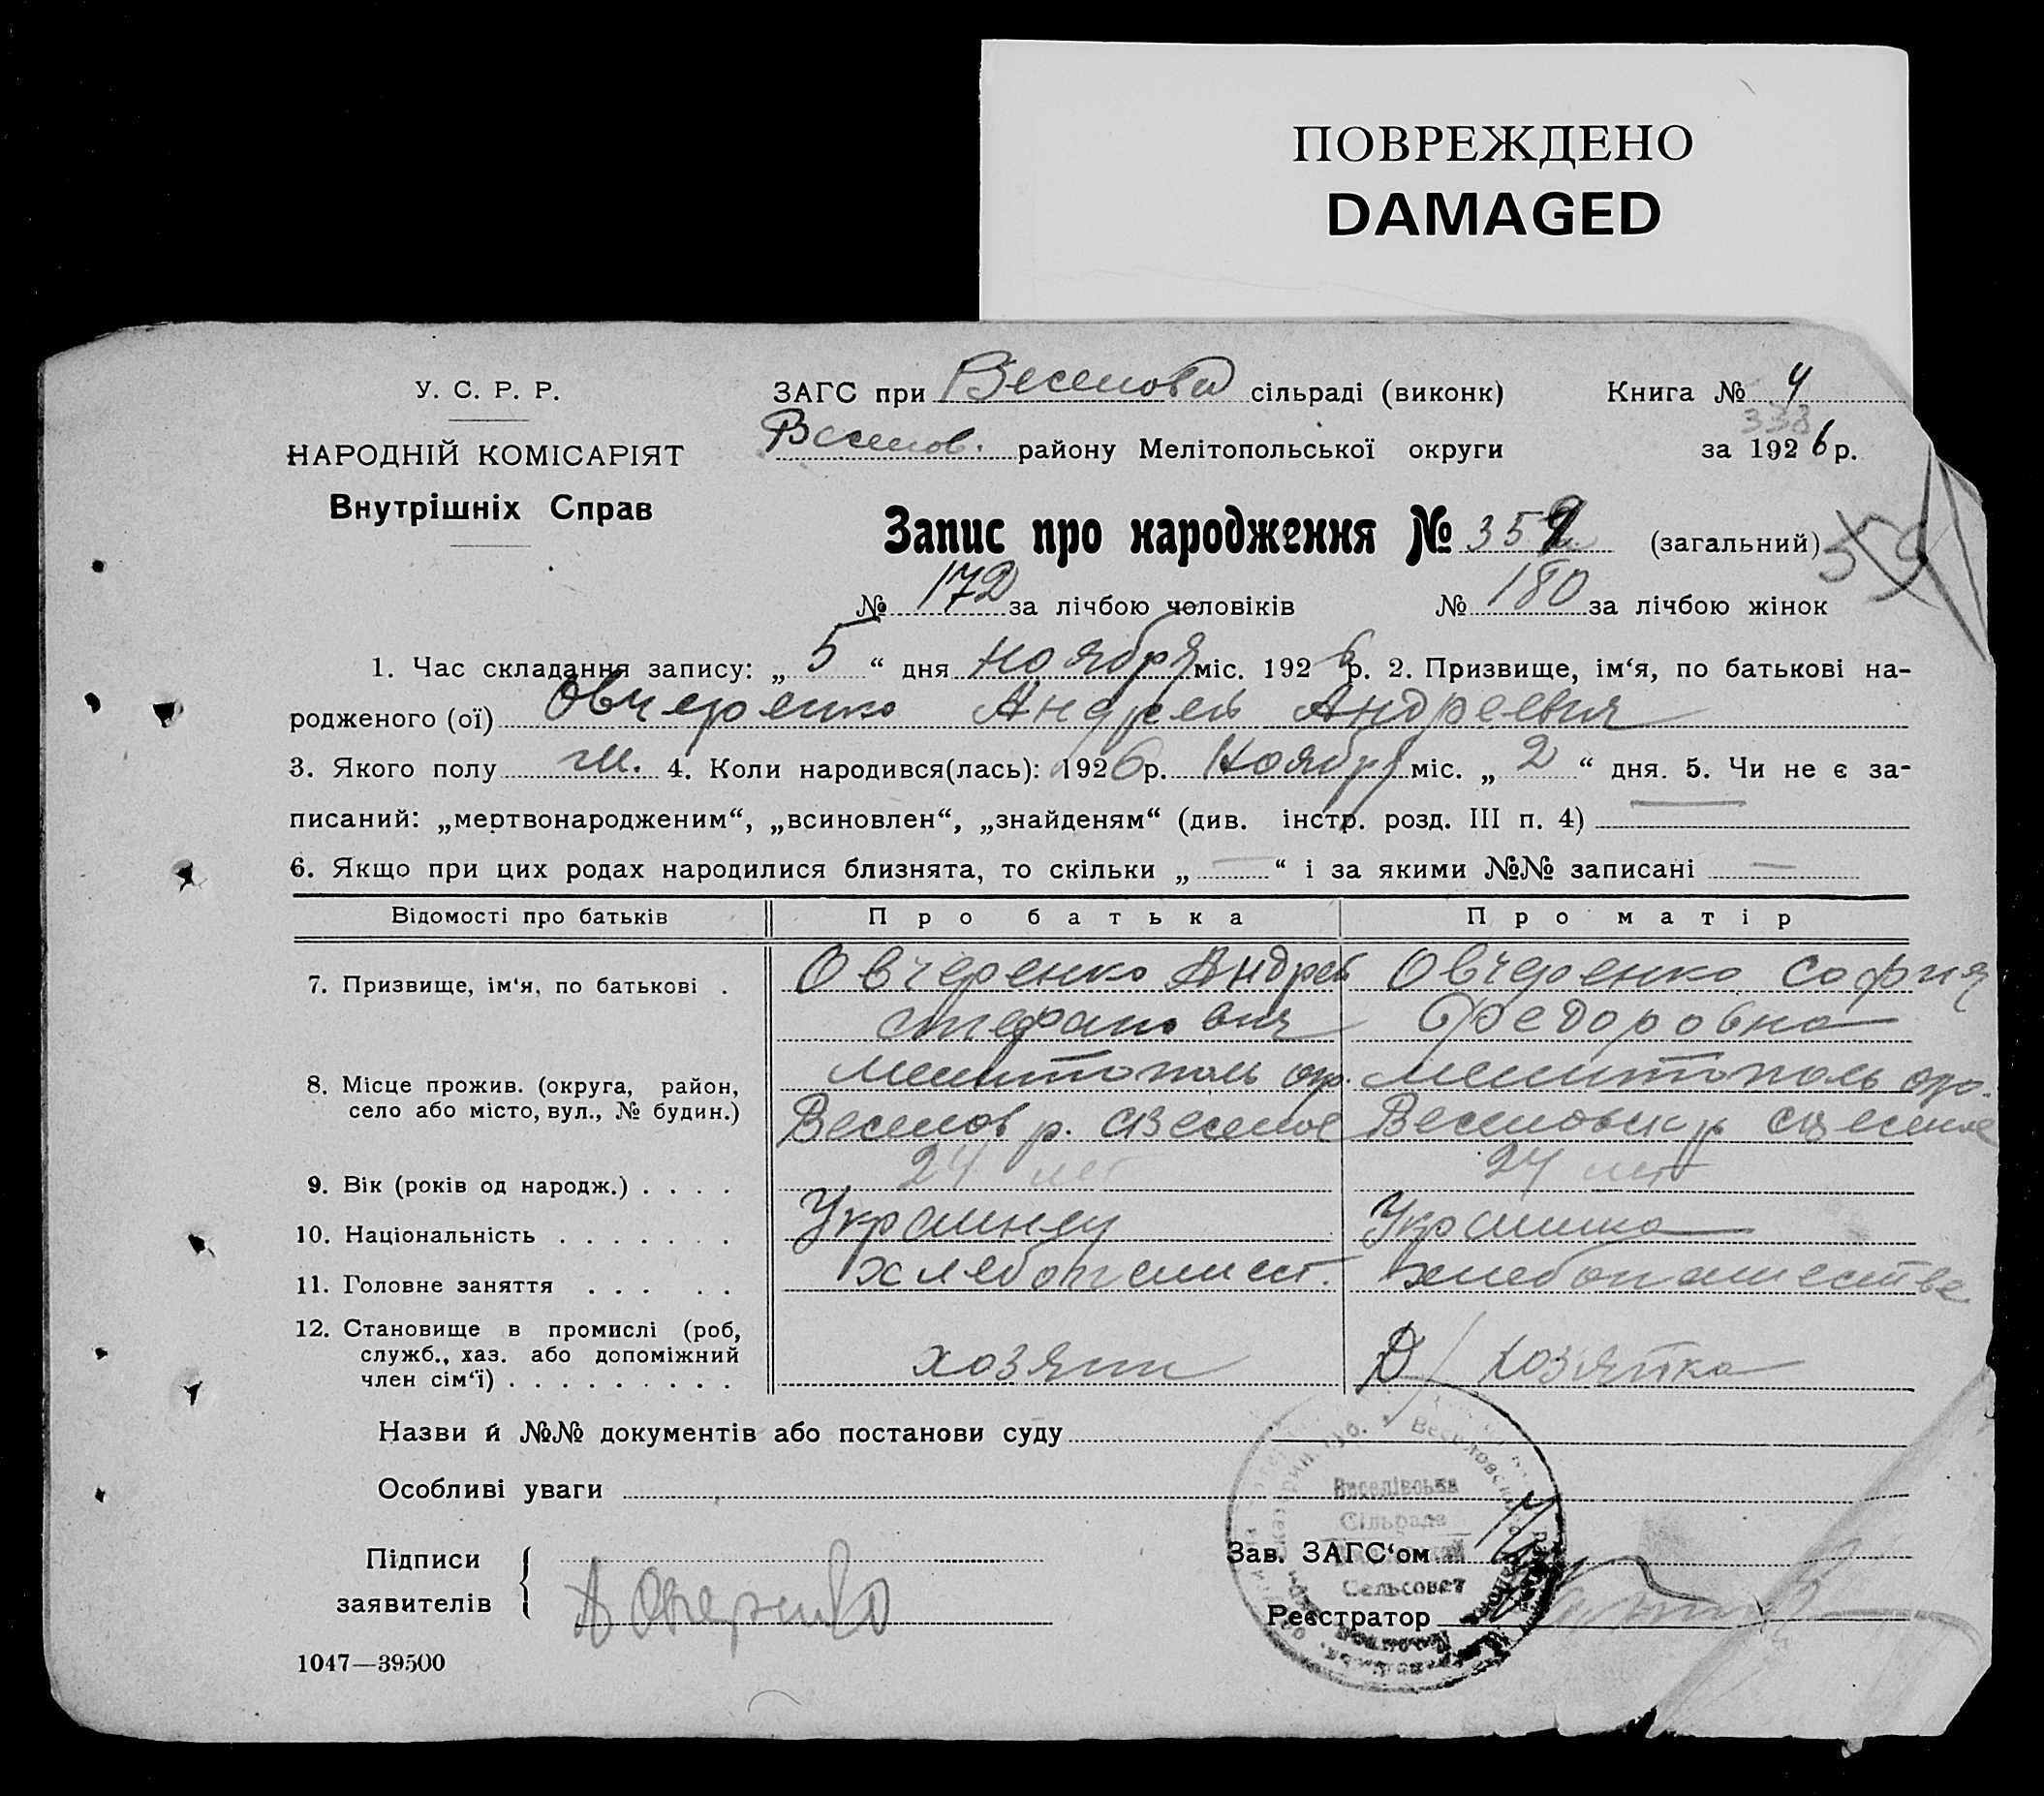 ПОВРЕЖДЕНО
DAMAGED
У. С. Р. Р.
НАРОДНІЙ КОМІСАРІЯТ
Внутрішніх Справ
ЗАГС при сільраді (виконк) Книга № 4
338
Веселов. району Мелітопольської округи за 1926 р.
Запис про народження № 352 (загальний) 59
№ 172 за лічбою чоловіків № 180 за лічбою жінок
1. Час складання запису: „ 5 “ дня Ноября міс. 1926 р. 2. Призвище, ім‘я, по батькові на-
родженого (ої) Овчеренко Андрей Андреевич
3. Якого полу м. 4. Коли народився(лась): 1926 р. Ноября міс. „ 2 “ дня. 5. Чи не є за-
писаний: „мертвонародженим“, „всиновлен“, „знайденям“ (див. інстр. розд. III п. 4) —
6. Якщо при цих родах народилися близнята, то скільки „ — “ і за якими №№ записані —
Відомості про батьків Про батька Про матір
7. Призвище, ім‘я, по батькові . Овчеренко Андрей Овчеренко София
Стефанович Федоровна
8. Місце прожив. (округа, район, Мелитополь окр. Мелитополь окр.
село або місто, вул., № будин.) Веселов р. с Веселое Веселовск р с Веселое
9. Вік (років од народж.) . . . . 24 лет 24 лет
10. Національність . . . . . . . Украинец Украинка
11. Головне заняття . . . . . хлебопашест. хлебопашество
12. Становище в промислі (роб,
служб., хаз. або допоміжний хозяин Д/ хозяйка
член сім‘ї) . . . . . . . . .
Назви й №№ документів або постанови суду
Особливі уваги
Веселівська
Сільрада
Підписи
заявителів А Овчеренко
Зав. ЗАГС‘ом
Сельсовет
Реєстратор
1047—39500